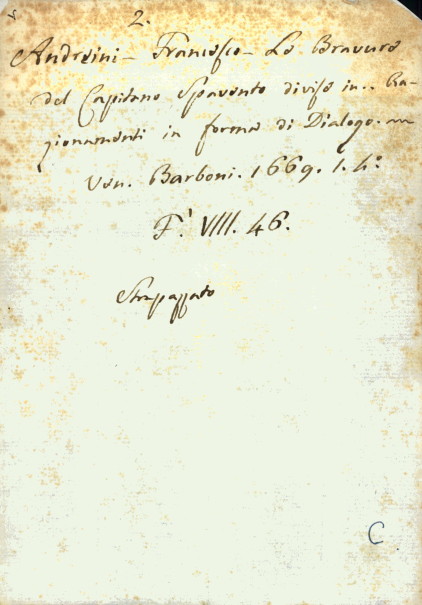 2.
Andreini - Francesco - Le Bravure
del Capitano Spavento divise in.. Ra-
gionamenti in forma di Dialogo.
Ven. Barboni. 1669. 1. 4º
F.' VIII. 46.
Strapazzato
C